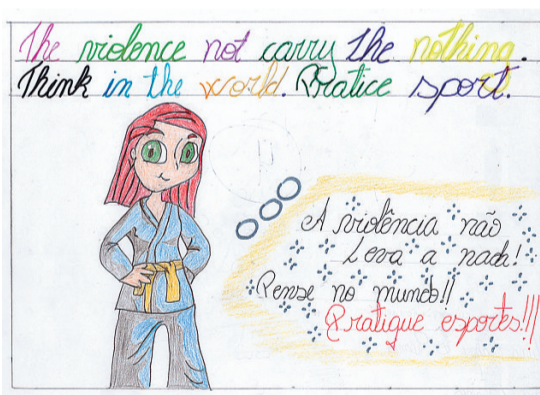 The violence not carry the nothing.
Think in the world. Pratice sport.
A violência não
Leva a nada!
Pense no mundo!!
Pratique esportes!!!